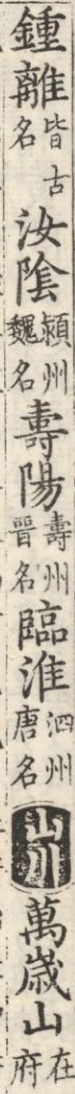 鍾離皆古名汝陰潁州魏名壽陽壽州晉名臨淮泗州唐名山川萬歳山在府